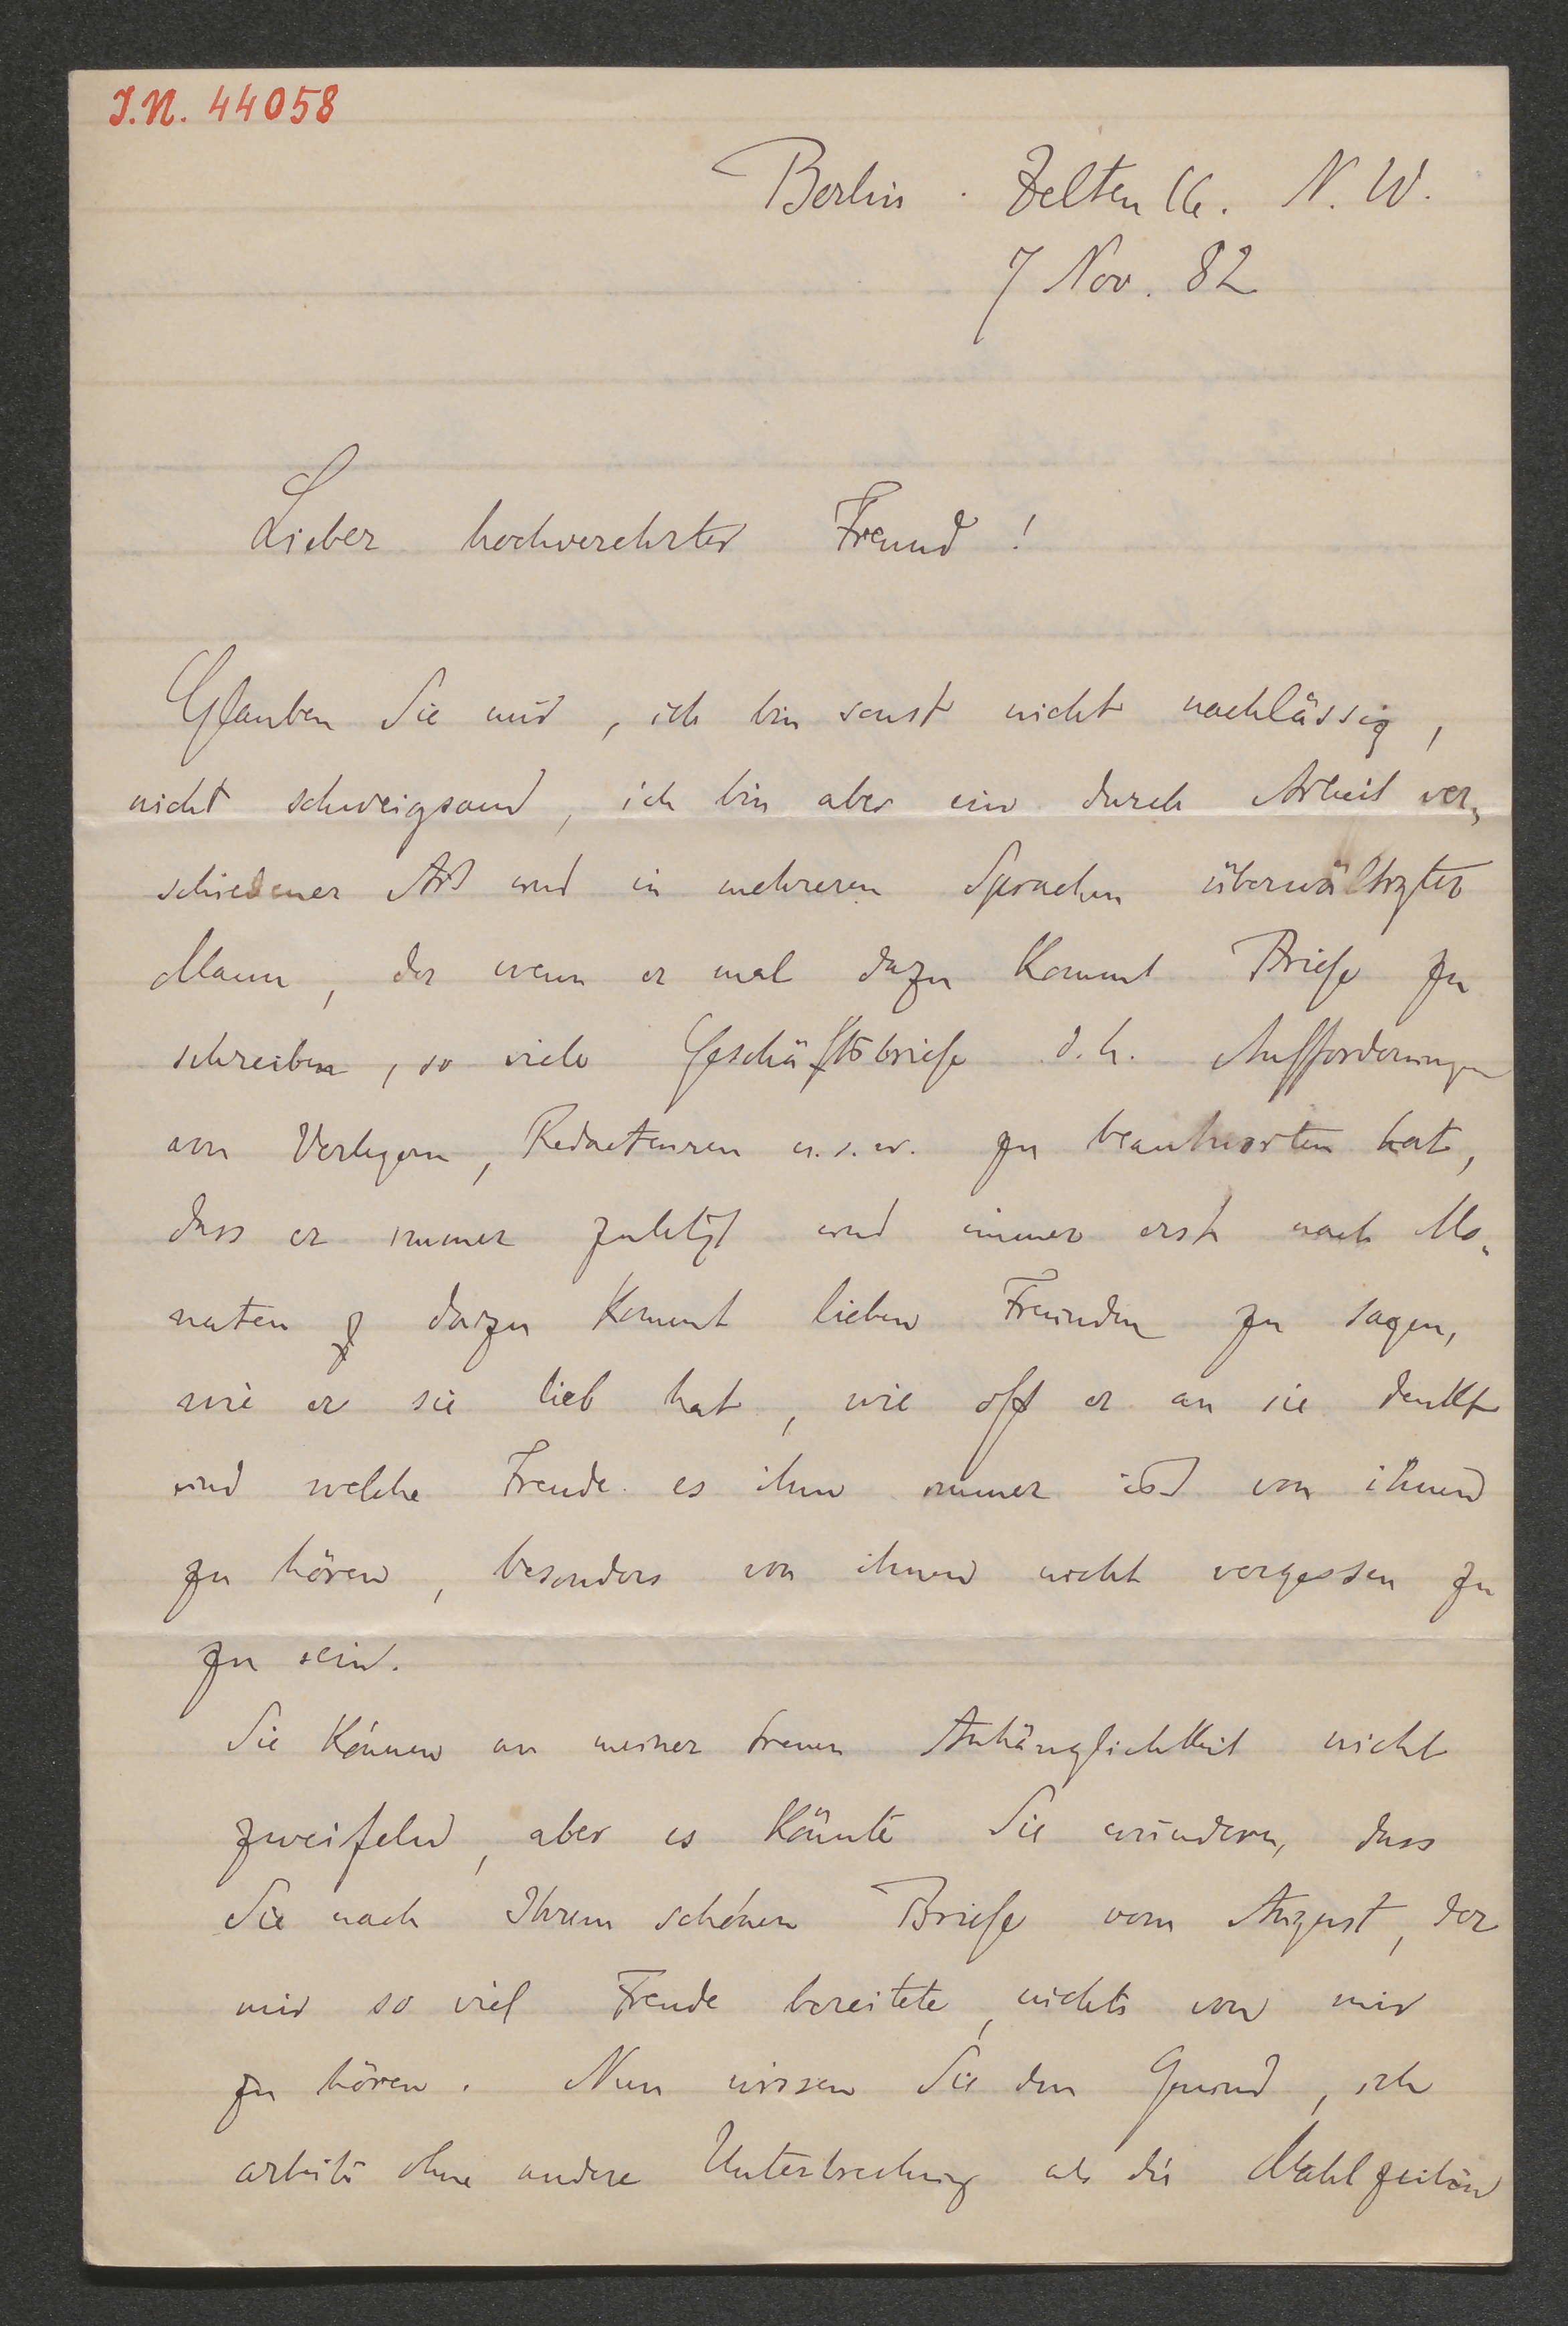 J.N. 44058
Berlin. Zelten 16. N. W.
7 Nov. 82
Lieber hochverehrter Freund!
Glauben Sie mir, ich bin sonst nicht nachlässig,
nicht schweigsam, ich bin aber ein durch Arbeit ver-
schiedener Art und in mehreren Sprachen überwältigter
Mann, der wenn er mal dazu kommt Briefe zu
schreiben, so viele Geschäftsbriefe d.h. Aufforderungen
von Verlegern, Redacteuren u.s.w. zu beantworten hat,
dass er immer zuletzt und immer erst nach Mo-
naten dazu kommt lieben Freunden zu sagen,
wie er sie lieb hat, wie oft er an sie denkt
und welche Freude es ihm immer ist von ihnen
zu hören, besonders von ihnen nicht vergessen zu
zu sein.
Sie können an meiner treuen Anhänglichkeit nicht
zweifeln, aber es könnte Sie wundern, dass
Sie nach Ihrem schönen Briefe vom August, der
mir so viel Freude bereitete, nichts von mir
zu hören. Nun wissen Sie den Grund, ich
arbeite ohne andere Unterbrechung als die Mahlzeiten